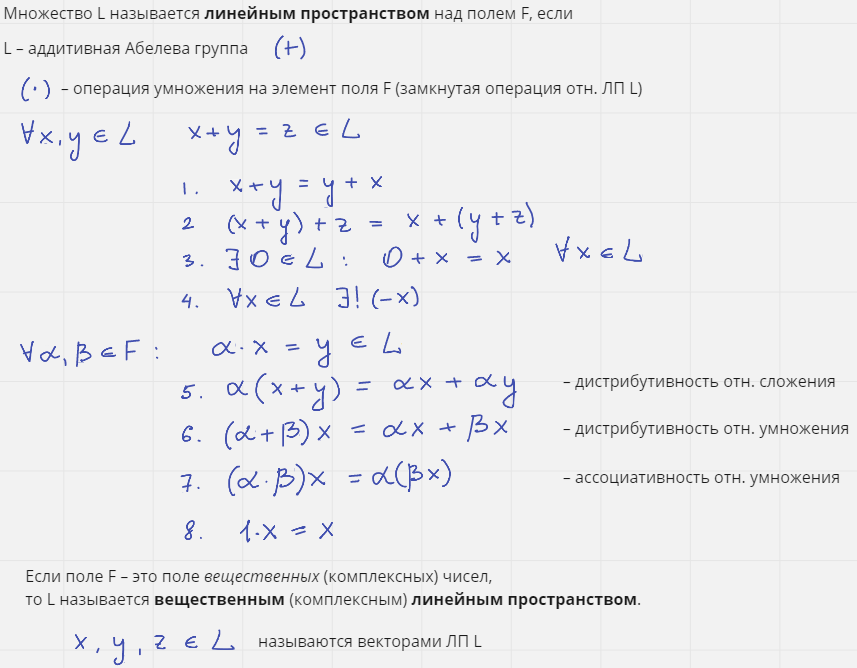 Множество L называется линейным пространством над полем F, если
L – аддитивная Абелева группа (+)
(·) – операция умножения на элемент поля F (замкнутая операция отн. ЛП L)
∀x, y ∈ L x + y = z ∈ L
1. x + y = y + x
2 (x + y) + z = x + (y + z)
3. ∃ 0 ∈ L : 0 + x = x ∀x ∈ L
4. ∀x ∈ L ∃! (-x)
∀α, β ∈ F : α · x = y ∈ L
5. α(x + y) = αx + αy – дистрибутивность отн. сложения
6. (α + β)x = αx + βx – дистрибутивность отн. умножения
7. (α · β)x = α(βx) – ассоциативность отн. умножения
8. 1·x = x
Если поле F – это поле вещественных (комплексных) чисел,
то L называется вещественным (комплексным) линейным пространством.
x, y, z ∈ L называются векторами ЛП L